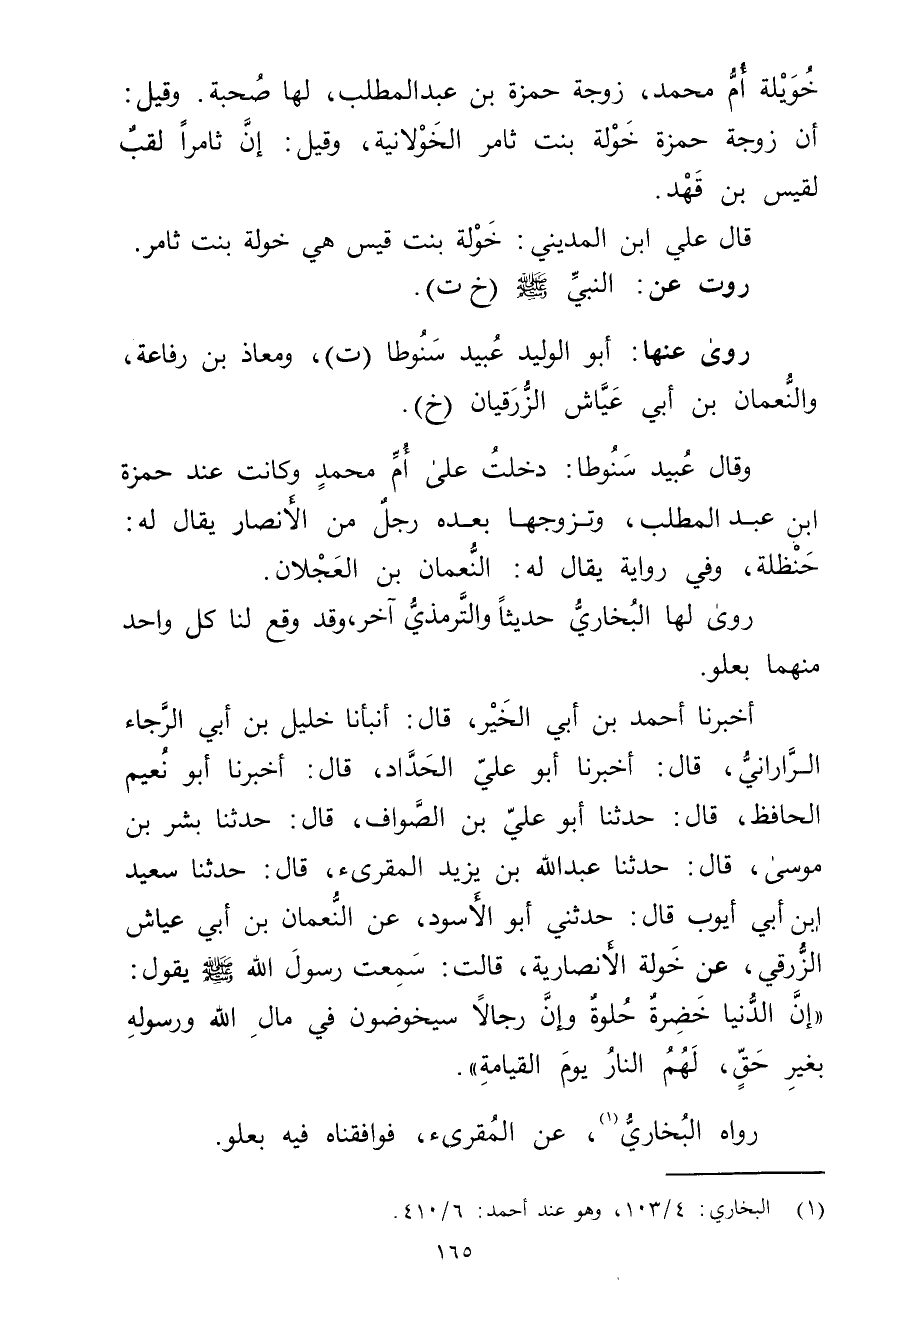 خُوَيْلة أُمُّ محمد، زوجة حمزة بن عبدالمطلب، لها صُحبة. وقيل:
أن زوجة حمزة خَوْلة بنت ثامر الخَوْلانية، وقيل: إنَّ ثامراً لقبٌ
لقيس بن قَهْد.
قال علي ابن المديني: خَوْلة بنت قيس هي خولة بنت ثامر.
روت عن: النبيِّ ﷺ (خ ت).
روىٰ عنها: أبو الوليد عُبيد سَنُوطا (ت)، ومعاذ بن رفاعة،
والنُّعمان بن أبي عَيَّاش الزُّرَقيان (خ).
وقال عُبيد سَنُوطا: دخلتُ علىٰ أُمِّ محمدٍ وكانت عند حمزة
ابن عبد المطلب، وتزوجها بعده رجلٌ من الأَنصار يقال له:
حَنْظلة، وفي رواية يقال له: النُّعمان بن العَجْلان.
روىٰ لها البُخاريُّ حديثاً والتَّرمذيُّ آخر،وقد وقع لنا كل واحد
منهما بعلو.
أخبرنا أحمد بن أبي الخَيْر، قال: أنبأنا خليل بن أبي الرَّجاء
الرَّارانيُّ، قال: أخبرنا أبو عليّ الحَدَّاد، قال: أخبرنا أبو نُعيم
الحافظ، قال: حدثنا أبو عليّ بن الصَّواف، قال: حدثنا بشر بن
موسىٰ، قال: حدثنا عبدالله بن يزيد المقرىء، قال: حدثنا سعيد
ابن أبي أيوب قال: حدثني أبو الأَسود، عن النُّعمان بن أبي عياش
الزُّرقي، عن خَولة الأَنصارية، قالت: سَمِعت رسولَ الله ﷺ يقول:
«إنَّ الدُّنيا خَضِرةٌ حُلوةٌ وإنَّ رجالاً سيخوضون في مالِ الله ورسولهِ
بغيرِ حَقٍّ، لَهُمُ النارُ يومَ القيامةِ».
رواه البُخاريُّ(١)، عن المُقرىء، فوافقناه فيه بعلو.
(١) البخاري: ١٠٣/٤، وهو عند أحمد: ٤١٠/٦.
١٦٥